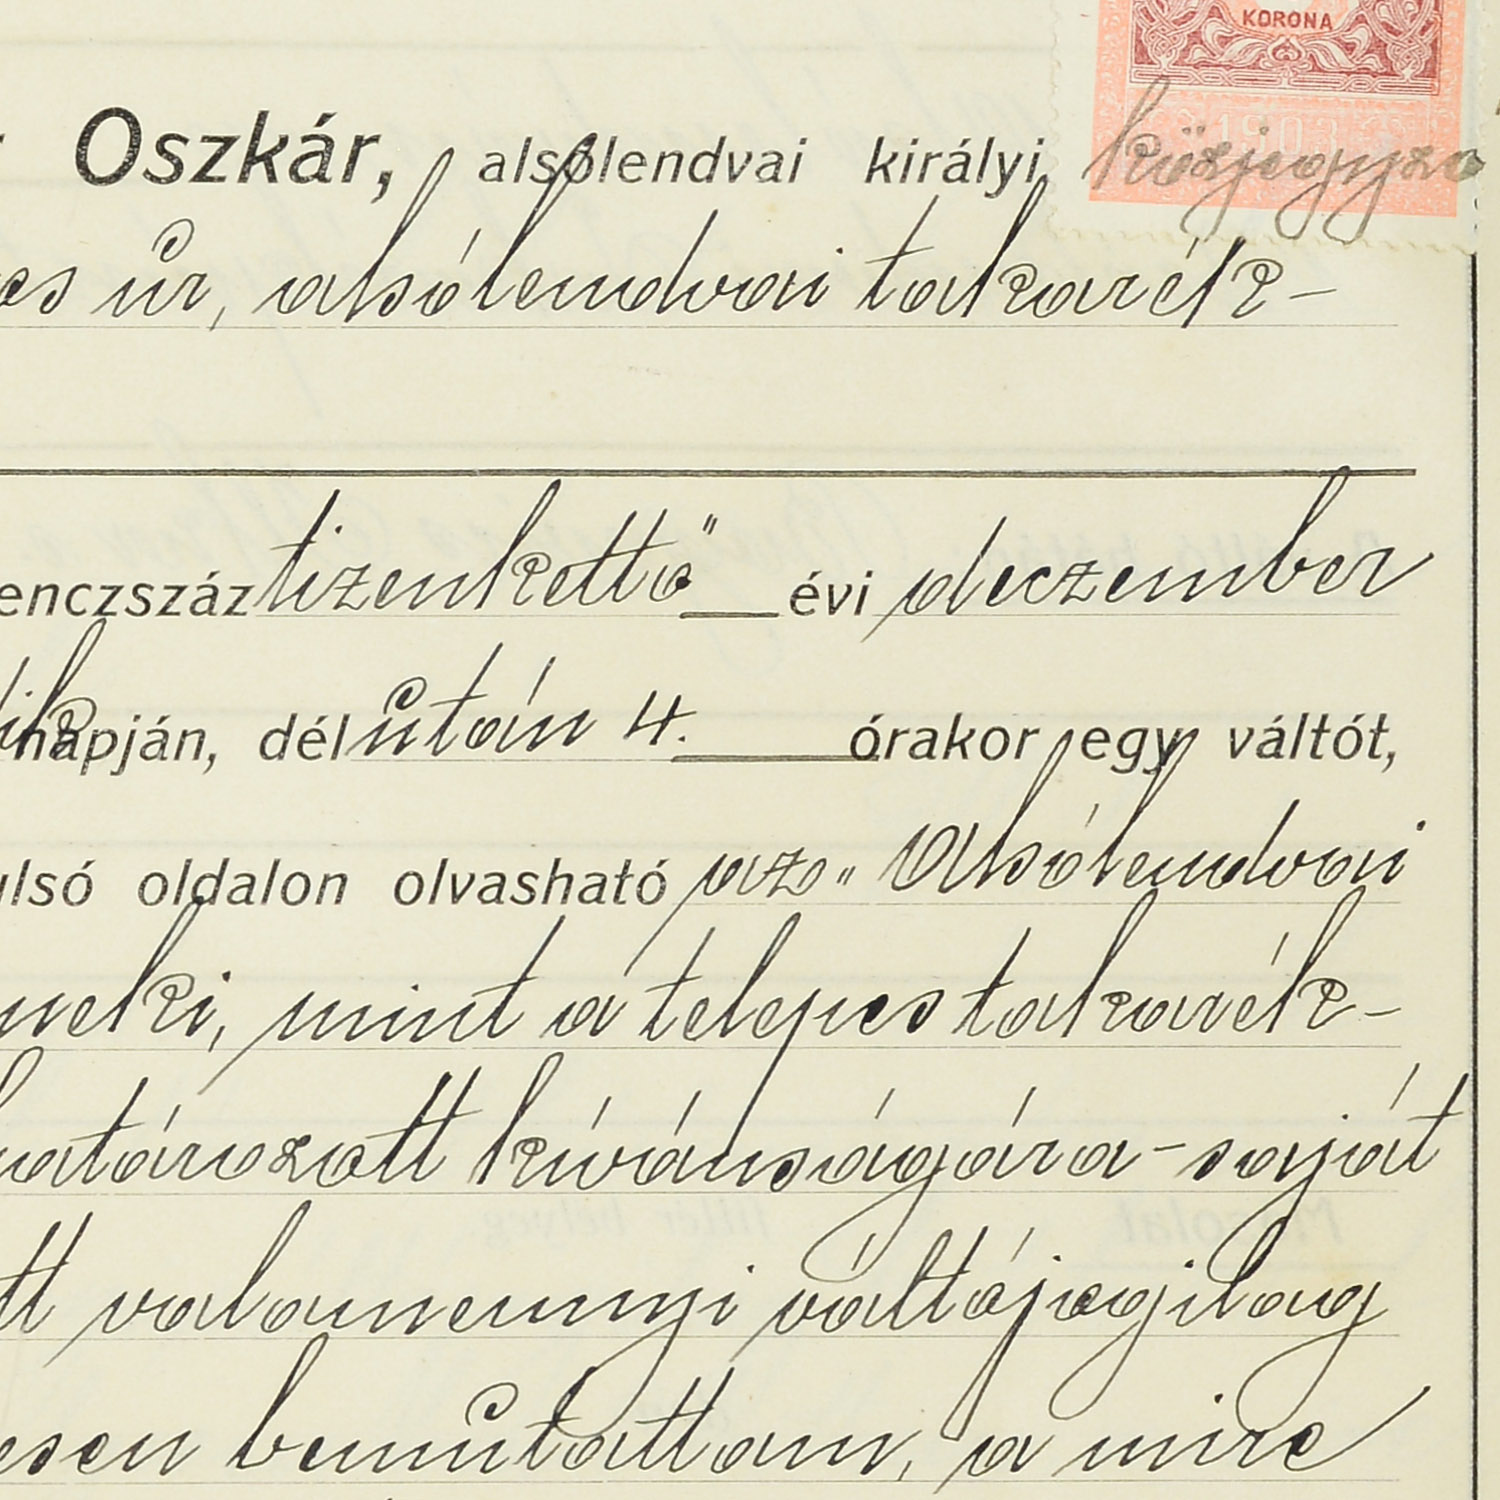 KORONA
1903
Oszkár, alsólendvai királyi közjegyző
es úr, alsólendvai takarék-
enczszáz tizenkettő évi deczember
ik napján, délután 4. órakor egy váltót,
ulsó oldalon olvasható az „Alsólendvai
neki, mint a telepes takarék-
határozott kívánságára - saját
tt valamennyi váltójogilag
esen bemutattam, a mire